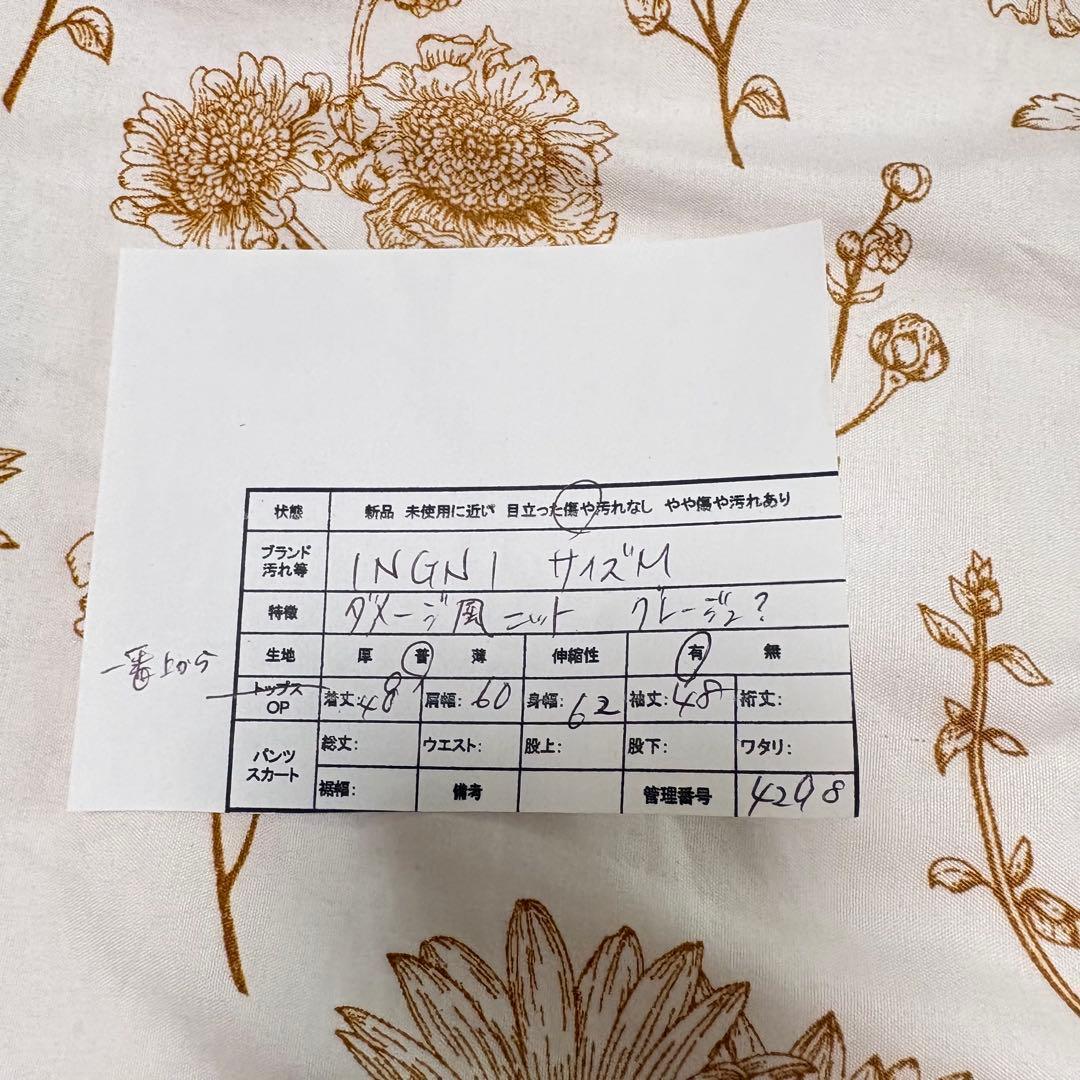 状態 新品 未使用に近い 目立った傷や汚れなし やや傷や汚れあり
ブランド
汚れ等 INGNI サイズM
特徴 ダメージ風ニット グレージュ?
生地 厚 普 薄 伸縮性 有 無
一番上から
トップス
OP 着丈:48 肩幅:60 身幅:62 袖丈:48 裄丈:
パンツ
スカート 総丈: ウエスト: 股上: 股下: ワタリ:
裾幅: 備考 管理番号 4298